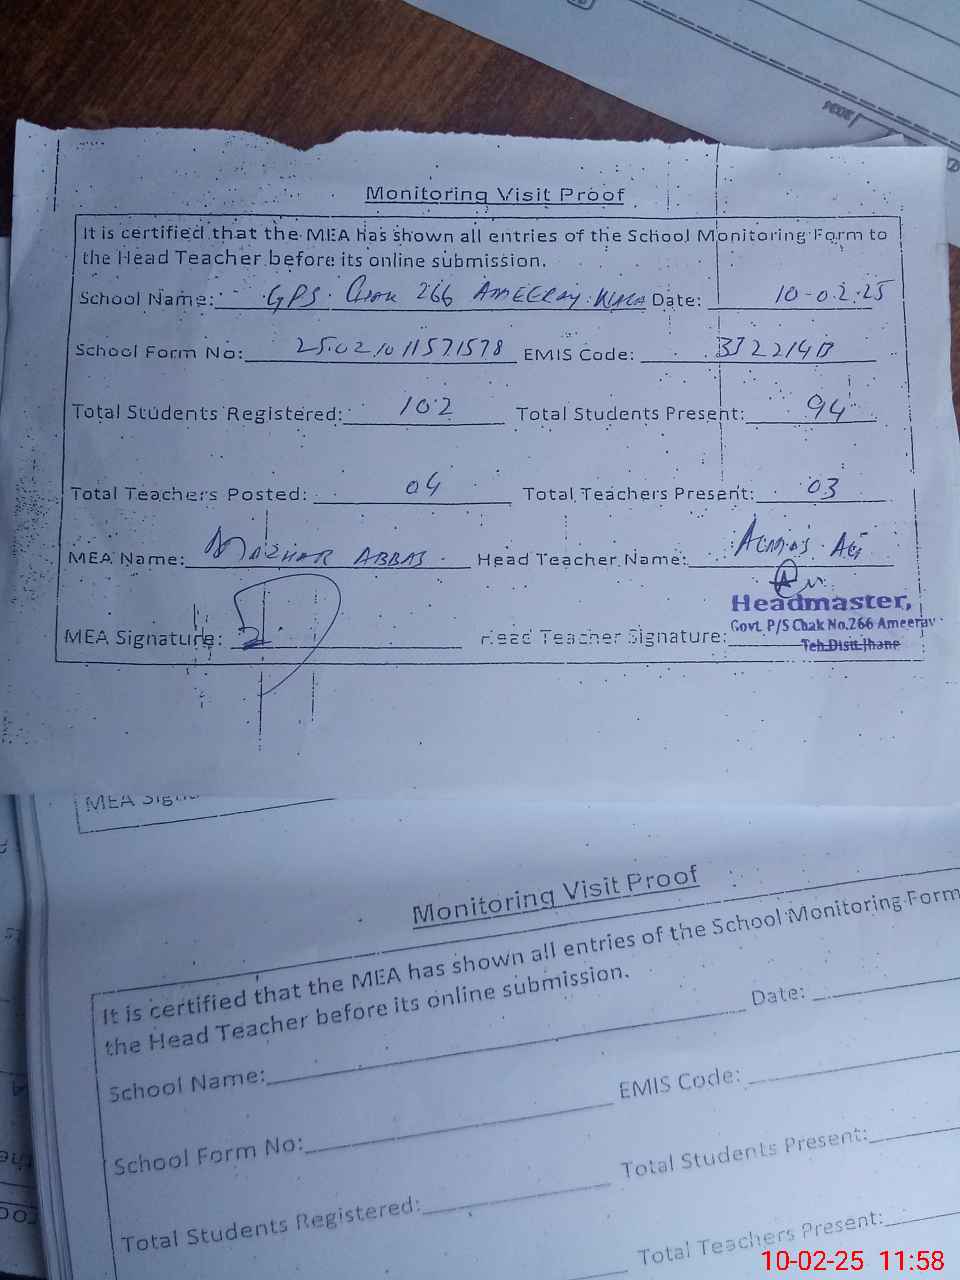 Monitoring Visit Proof
It is certified that the MEA has shown all entries of the School Monitoring Form to
the Head Teacher before its online submission.
School Name: GPS. Chak 266 AMEERAY. WALA Date: 10-02-25
School Form No: 25021011571578 EMIS Code:
Total Students Registered: 102 Total Students Present: 94
Total Teachers Posted: 04 Total Teachers Present: 03
MEA Name: MAZHAR ABBAS Head Teacher Name: Almas Ali
Headmaster,
MEA Signature: Head Teacher Signature: Govt. P/S Chak No.266 Ameeray
Teh.Distt.Jhang
MEA
Monitoring Visit Proof
It is certified that the MEA has shown all entries of the School Monitoring Form
the Head Teacher before its online submission.
School Name: Date:
School Form No: EMIS Code:
Total Students Registered: Total Students Present:
Total Teachers Present:
10-02-25 11:58